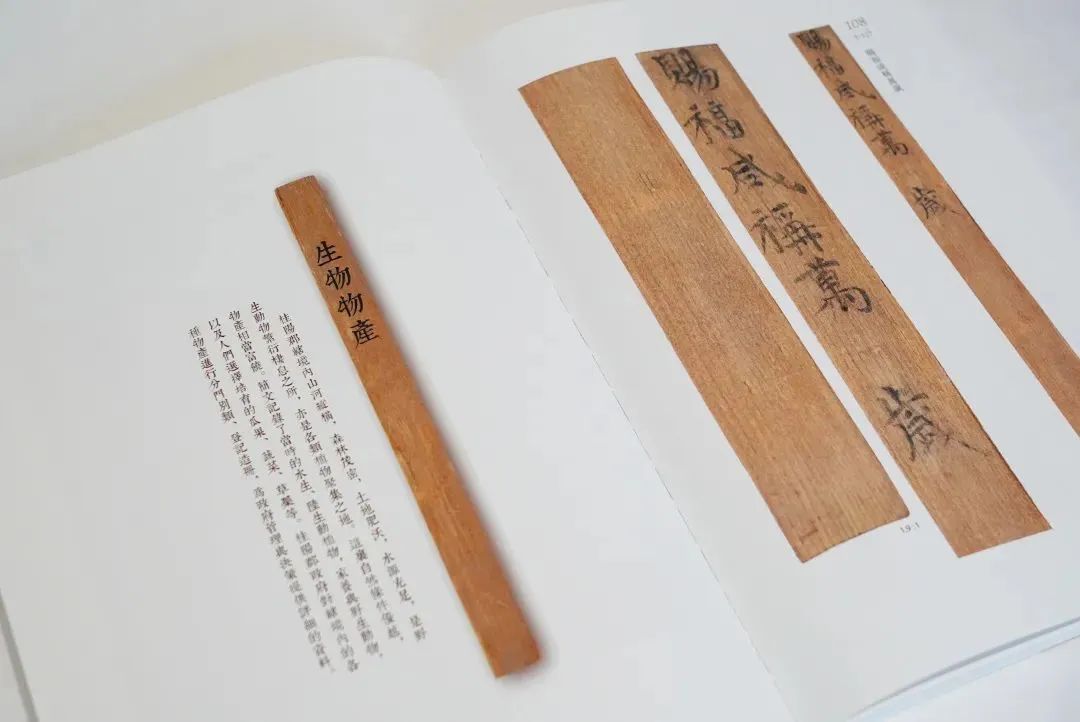 生物物產
桂陽郡轄境內山河縱橫，森林茂密，土地肥沃，水源充足，是野
生動物繁衍棲息之所，亦是各類植物聚集之地。這裏自然條件優越，
物產相當富饒。簡文記錄了當時的水生、陸生動植物，家養與野生動物，
以及人們選擇培育的瓜果、蔬菜、草藥等。桂陽郡政府對轄境內的各
種物產進行分門別類、登記造冊，爲政府管理與決策提供詳細的資料。
108
賜福咸稱萬 歲
賜福咸稱萬 歲
1.9:1